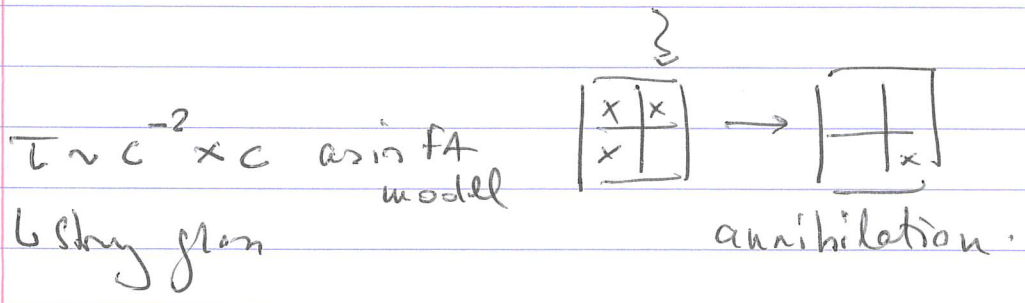 τ ~ c^-2 × c as in FA
model
↳ Strong glass
x x
x
→
x
annihilation.